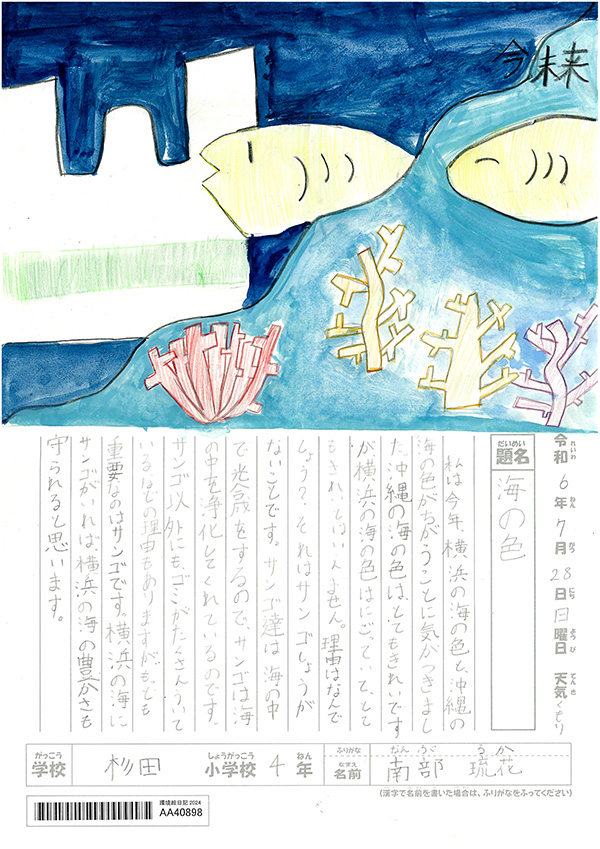 今 未来
令和6年7月28日日曜日 天気くもり
れいわ ねん がつ にち ようび てんき
だいめい
題名
海の色
私は今年、横浜の海の色と、沖縄の
海の色がちがうことに気がつきまし
た。沖縄の海の色は、とてもきれいです
が横浜の海の色はにごっていて、とて
もきれいとはいえません。理由はなんで
しょう？それはサンゴしょうが
ないことです。サンゴ達は海の中
で光合成をするので、サンゴは海
の中を浄化してくれているのです。
サンゴ以外にも、ゴミがたくさんういて
いるなどの理由もありますが、もっとも
重要なのはサンゴです。横浜の海に
サンゴがいれば、横浜の海の豊かさも
守られると思います。
がっこう しょうがっこう ねん ふりがな なんぶ るか
学校 杉田 小学校 4年 なまえ 名前 南部 琉花
(漢字で名前を書いた場合は、ふりがなをふってください)
環境絵日記2024
AA40898